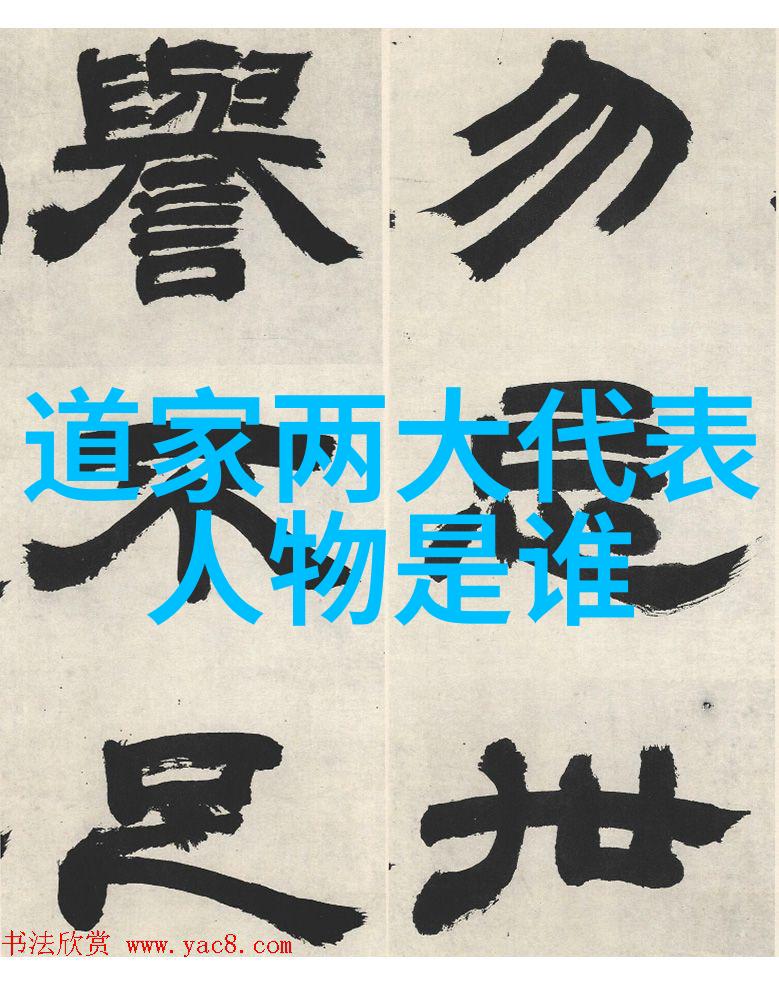 道家两大代表
人物是谁
勿
世
譽不足
书法欣赏 www.yac8.com